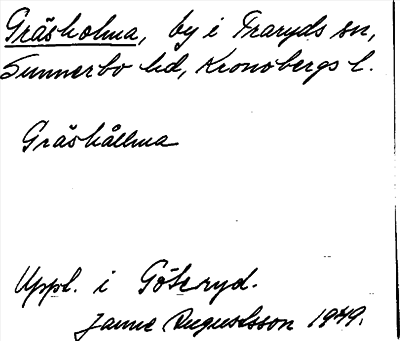 Gräsholma, by i Traryds sn,
Sunnerbo hd, Kronobergs l.
Gräshållma
Uppl. i Göteryd.
Janne Augustsson 1949.